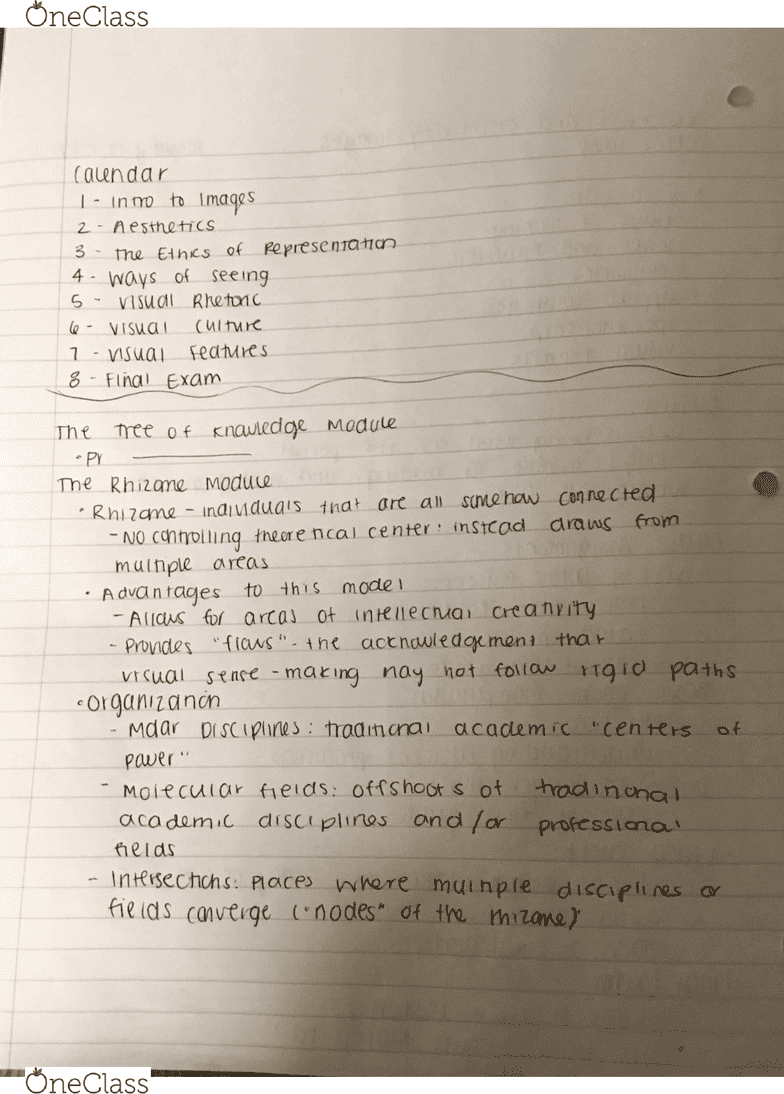 OneClass
Calendar
1 - Intro to Images
2 - Aesthetics
3 - The Ethics of Representation
4 - Ways of seeing
5 - Visual Rhetoric
6 - Visual Culture
7 - Visual Features
8 - Final Exam
The Tree of Knowledge Module
• Pr
The Rhizome Module
• Rhizome - individuals that are all somehow connected
- No controlling theoretical center: instead draws from
multiple areas
• Advantages to this model
- Allows for areas of intellectual creativity
- Provides "flows" - the acknowledgement that
visual sense-making may not follow rigid paths
• Organization
- Molar Disciplines: traditional academic "centers of
power"
- Molecular fields: offshoots of traditional
academic disciplines and/or professional
fields
- Intersections: Places where multiple disciplines or
fields converge ("nodes" of the rhizome)
OneClass